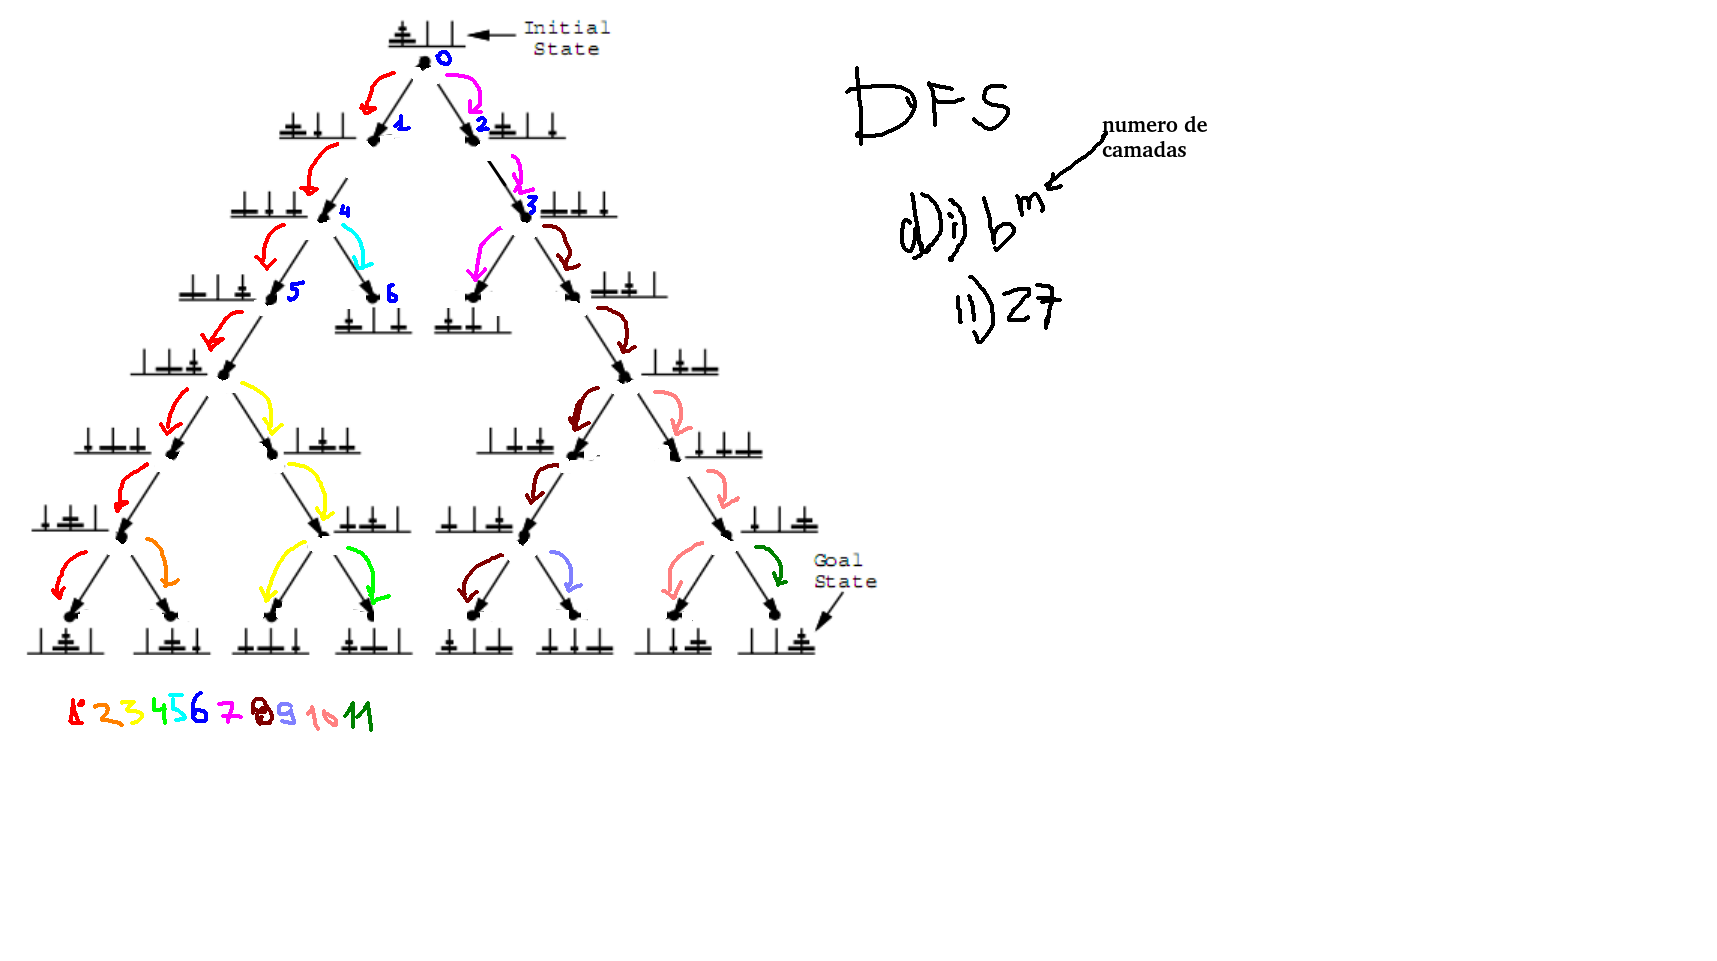 Initial
State
0
1
2
4
3
5
6
Goal
State
1 2 3 4 5 6 7 8 9 10 11
DFS
numero de
camadas
d) i) b^m
ii) 27